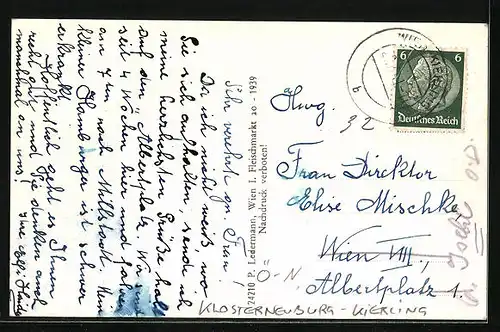 Sehr verehrte gn. Frau!
Da ich nicht weiß, wo
Sie sich aufhalten, sende ich
meine herzlichsten Grüße halt
auf den Albertplatz. Wir sind
seit 4 Wochen hier und fahren
am 7. nach Millstatt. Mein
kleiner Hamburger ist schwer
erkrankt.
Hoffentlich geht es Ihnen
recht gut und Sie denken auch
manchmal an uns! Ihre
24210 P. Ledermann, Wien I. Fleischmarkt 20 - 1939
Nachdruck verboten!
WIEN
6 6
Deutsches Reich
b
32
Frau Direktor
Elise Mischke
Wien VIII.,
Albertplatz 1.
O-N
KLOSTERNEUBURG-KIERLING